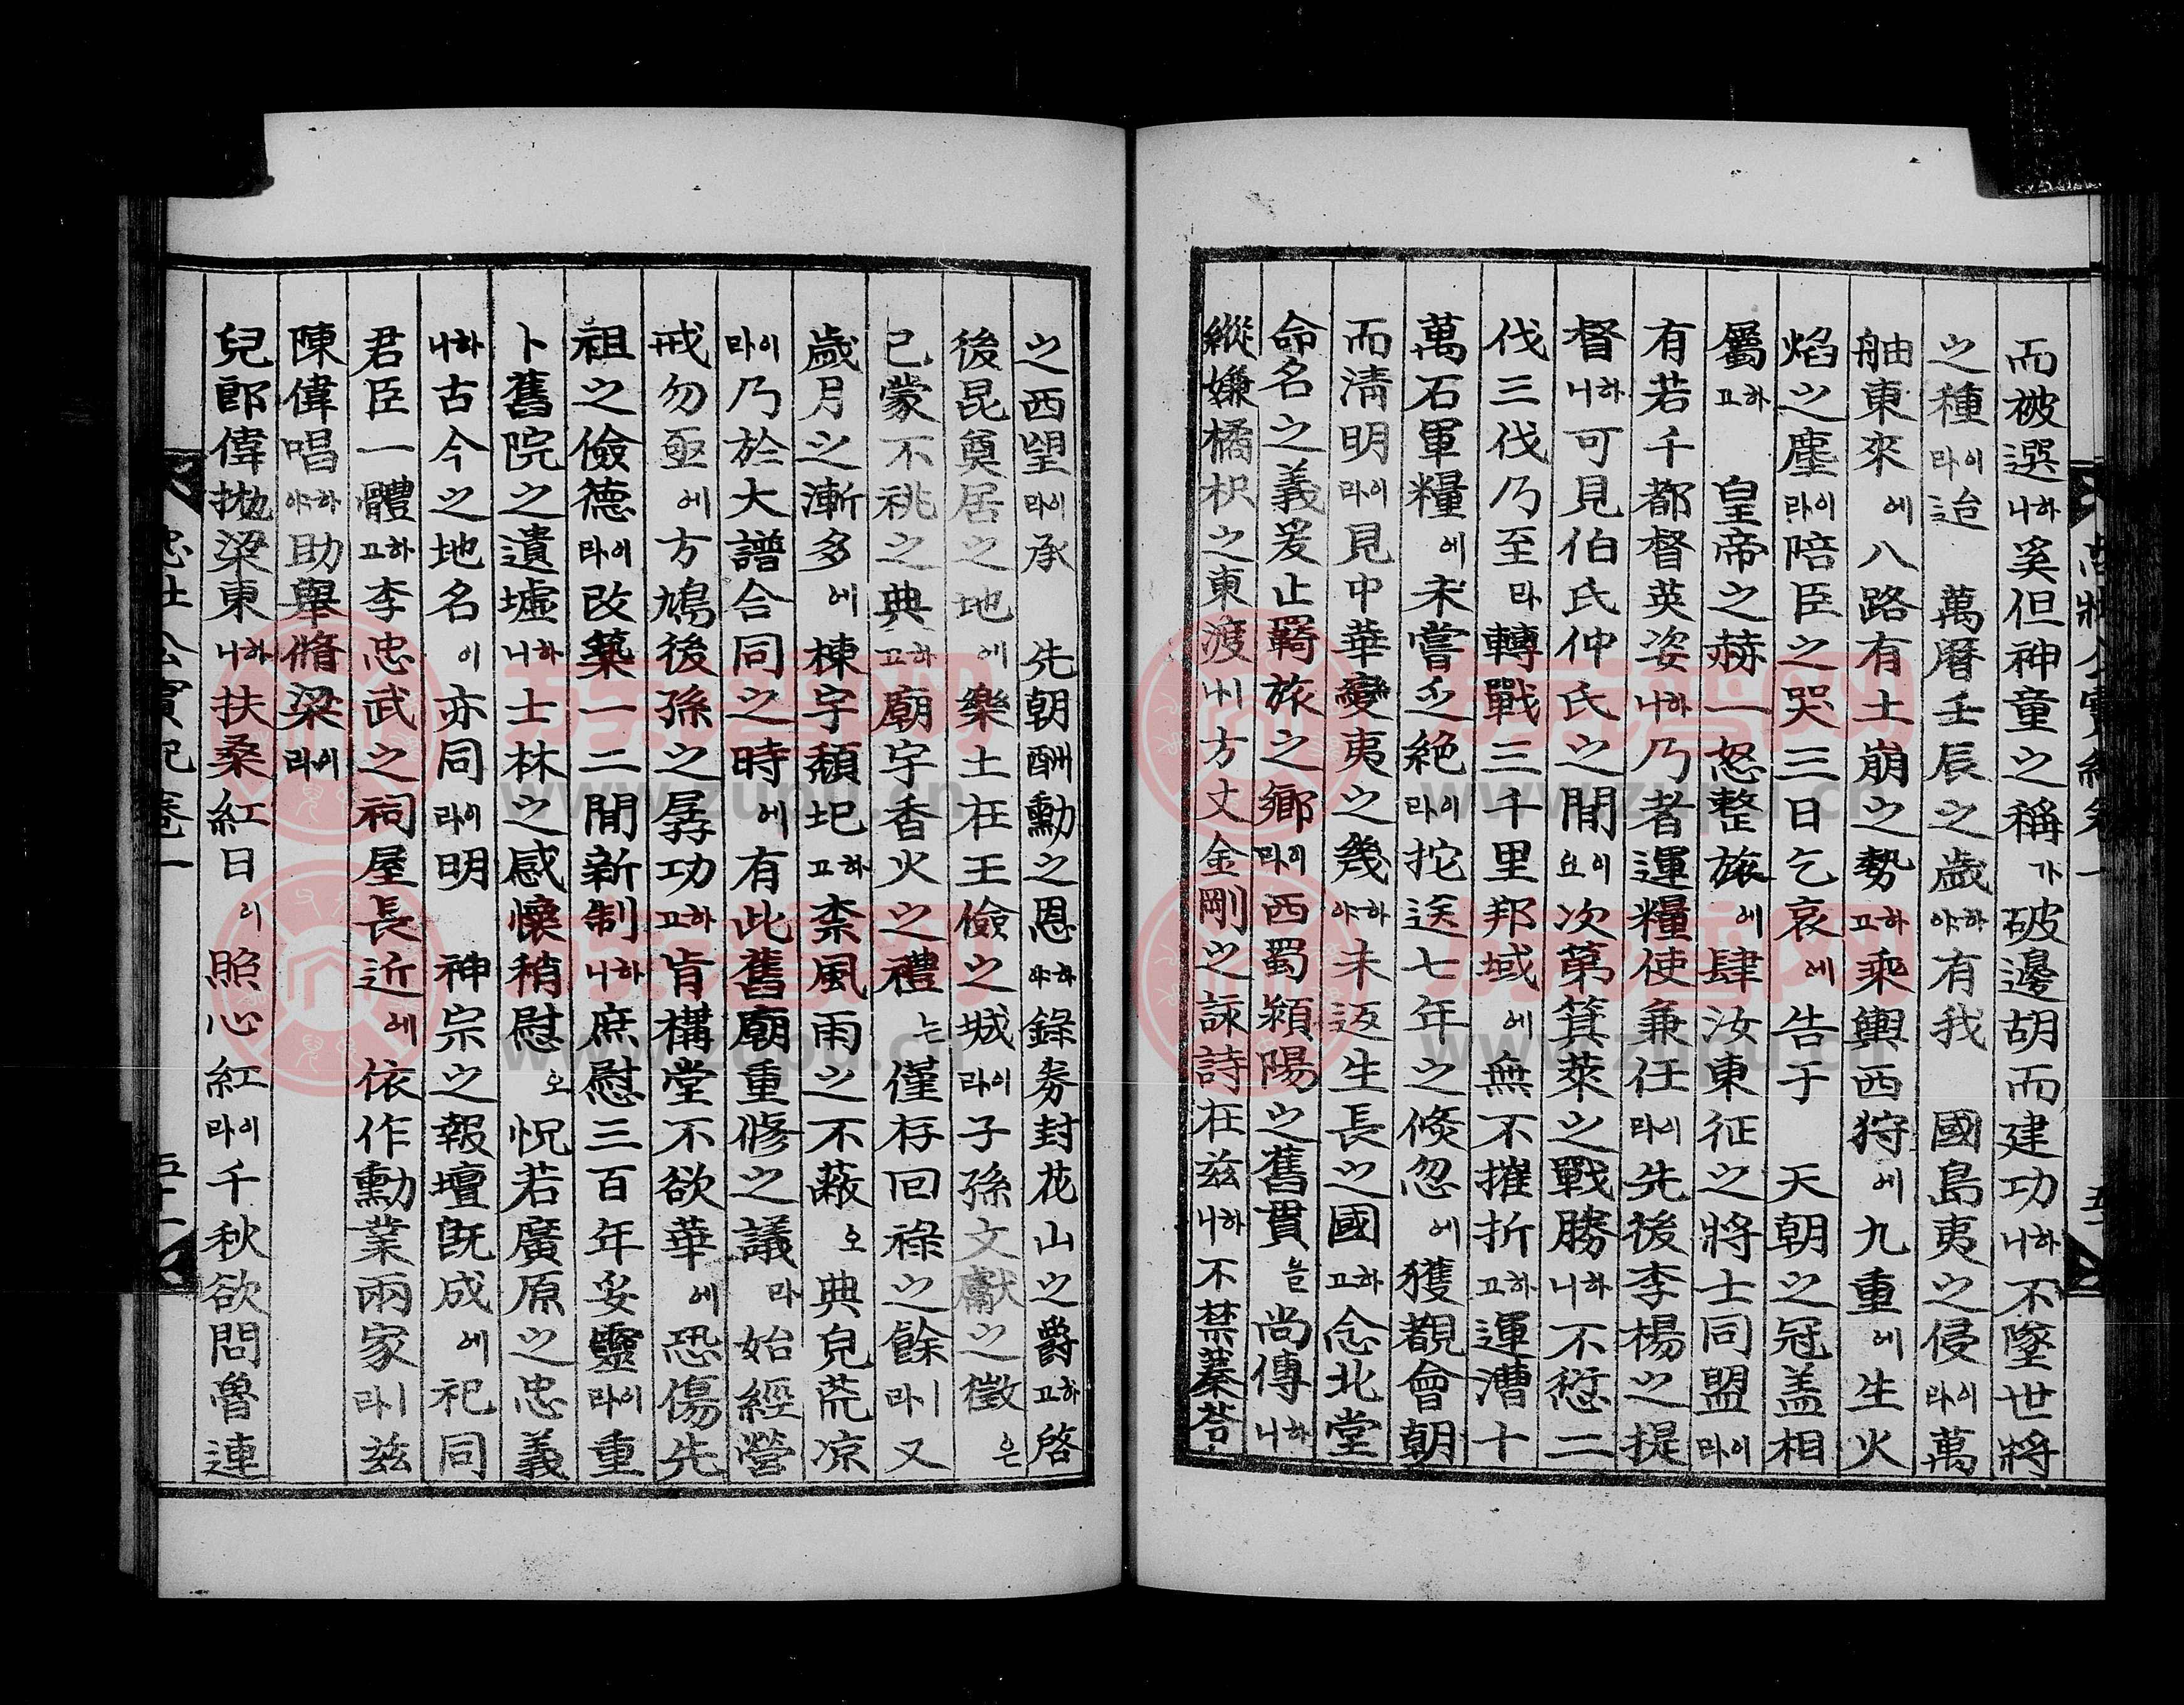 而被選하니奚但神童之稱가破邊胡而建功하니不墜世將
之種이라迨 萬曆壬辰之歲하야有我 國島夷之侵이라萬
舳東來에八路有土崩之勢하고乘輿西狩에九重에生火
焰之塵이라陪臣之哭三日乞哀에告于 天朝之冠盖相
屬하고 皇帝之赫一怒整旅에肆汝東征之將士同盟이라
有若千都督英姿하니乃者運糧使兼任이라先後李楊之提
督하니可見伯氏仲氏之間이요次第箕萊之戰勝하니不愆二
伐三伐乃至라轉戰三千里邦域에無不摧折하고運漕十
萬石軍糧에未嘗乏絶이라拕送七年之倏忽에獲觀會朝
而淸明이라見中華變夷之幾하야未返生長之國하고念北堂
命名之義爰止羇旅之鄕이라西蜀潁陽之舊貫을尙傳하니
縱嫌橘枳之東渡나方丈金剛之詠詩在玆하니不禁蓁荅
之西望이라承 先朝酬勳之恩하야錄券封花山之爵하고啓
後昆奠居之地에樂土在王儉之城이라子孫文獻之徵은
已蒙不祧之典하고廟宇香火之禮는僅存回祿之餘라又
歲月之漸多에棟宇頹圮하고柰風雨之不蔽오典皃荒凉
이라乃於大譜合同之時에有此舊廟重修之議라始經營
戒勿亟에方鳩後孫之孱功하고肯構堂不欲華에恐傷先
祖之儉德이라改築一二間新制하니庶慰三百年妥靈이라重
卜舊院之遺墟하니士林之感懷稍慰오怳若廣原之忠義
하니古今之地名이亦同이라明 神宗之報壇旣成에祀同
君臣一體하고李忠武之祠屋長近에依作勳業兩家라玆
陳偉唱하야助擧脩梁이라
兒郎偉抛梁東하니扶桑紅日이照心紅이라千秋欲問魯連
忠壯公實紀卷一 五十一
www.zupu.cn
www.zupu.cn
www.zupu.cn
www.zupu.cn